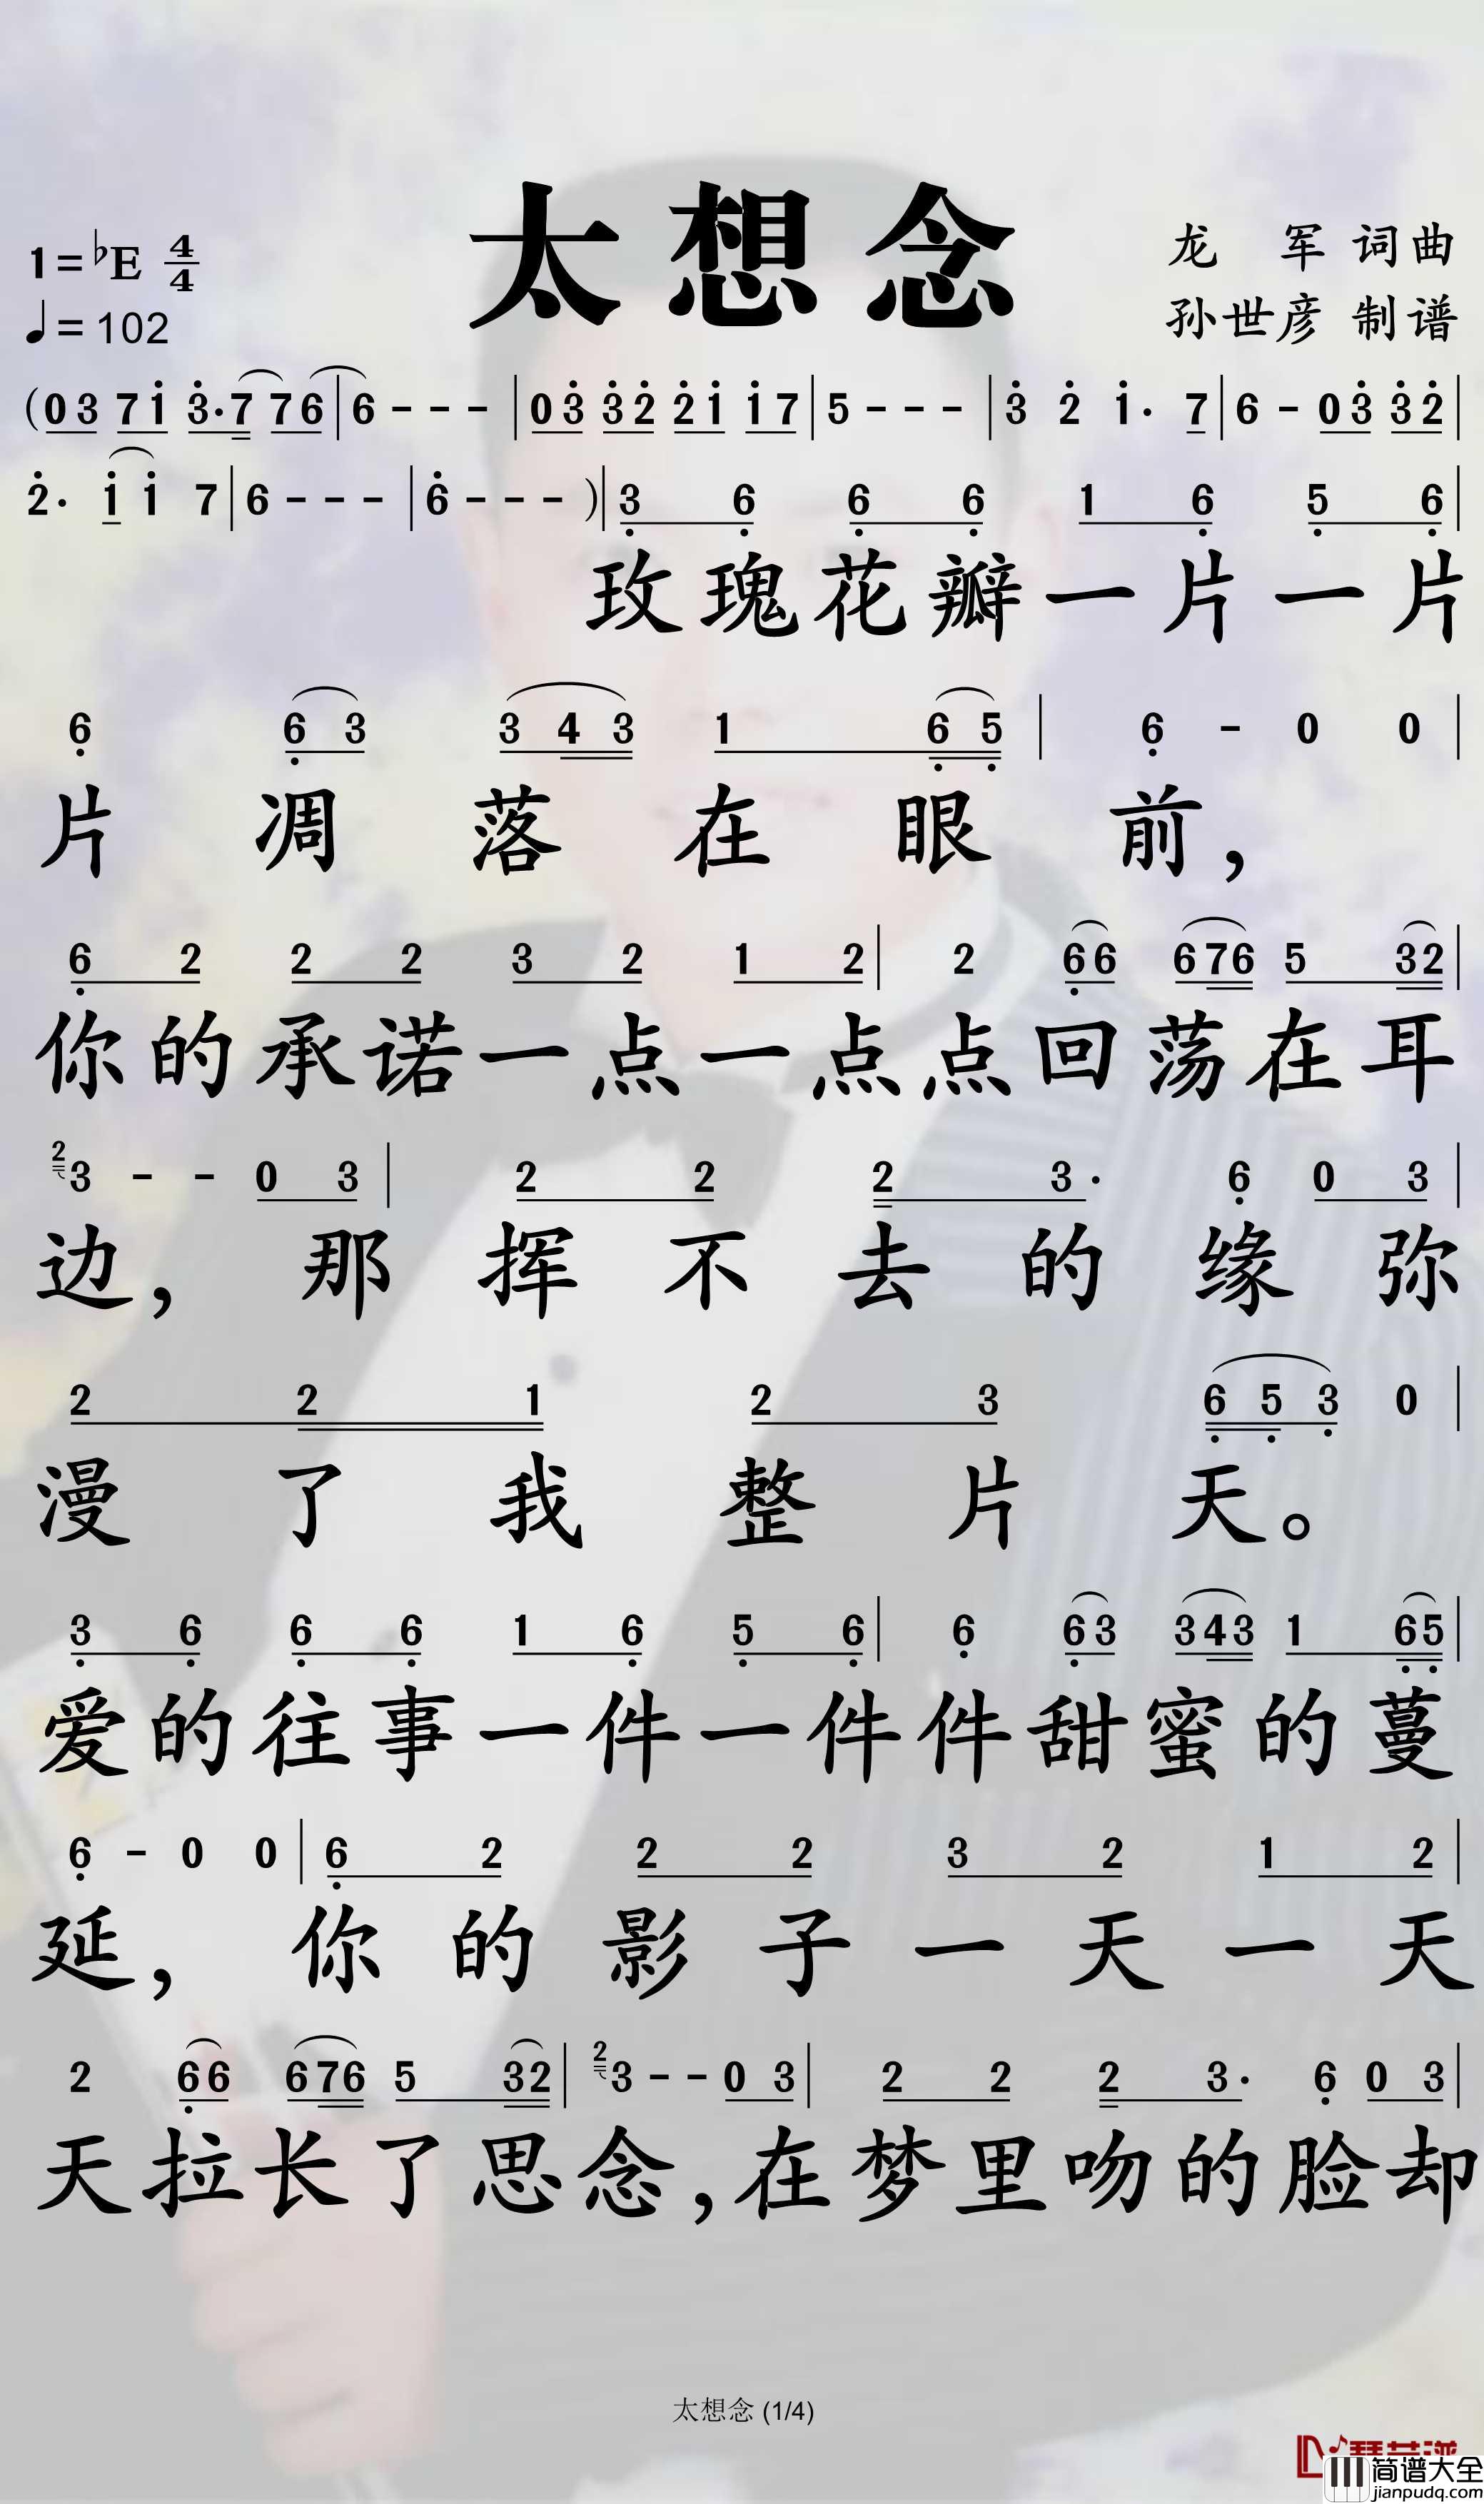 太想念
1=♭E 4/4
龙 军 词曲
♩=102
孙世彦 制谱
(0 3 7 1 3· 7 7 6 | 6 - - - | 0 3 3 2 2 1 1 7 | 5 - - - | 3 2 1· 7 | 6 - 0 3 3 2 |
2· 1 1 7 | 6 - - - | 6 - - - )| 3 6 6 6 1 6 5 6 |
玫瑰花瓣一片一片
6 6 3 3 4 3 1 6 5 | 6 - 0 0 |
片凋落在眼前，
6 2 2 2 3 2 1 2 | 2 6 6 6 7 6 5 3 2 |
你的承诺一点一点点回荡在耳
2 3 - - 0 3 | 2 2 2 3· 6 0 3 |
边，那挥不去的缘弥
2 2 1 2 3 6 5 3 0 |
漫了我整片天。
3 6 6 6 1 6 5 6 | 6 6 3 3 4 3 1 6 5 |
爱的往事一件一件件甜蜜的蔓
6 - 0 0 | 6 2 2 2 3 2 1 2 |
延，你的影子一天一天
2 6 6 6 7 6 5 3 2 | 2 3 - - 0 3 | 2 2 2 3· 6 0 3 |
天拉长了思念，在梦里吻的脸却
太想念 (1/4)
简谱大全
jianpudq.com